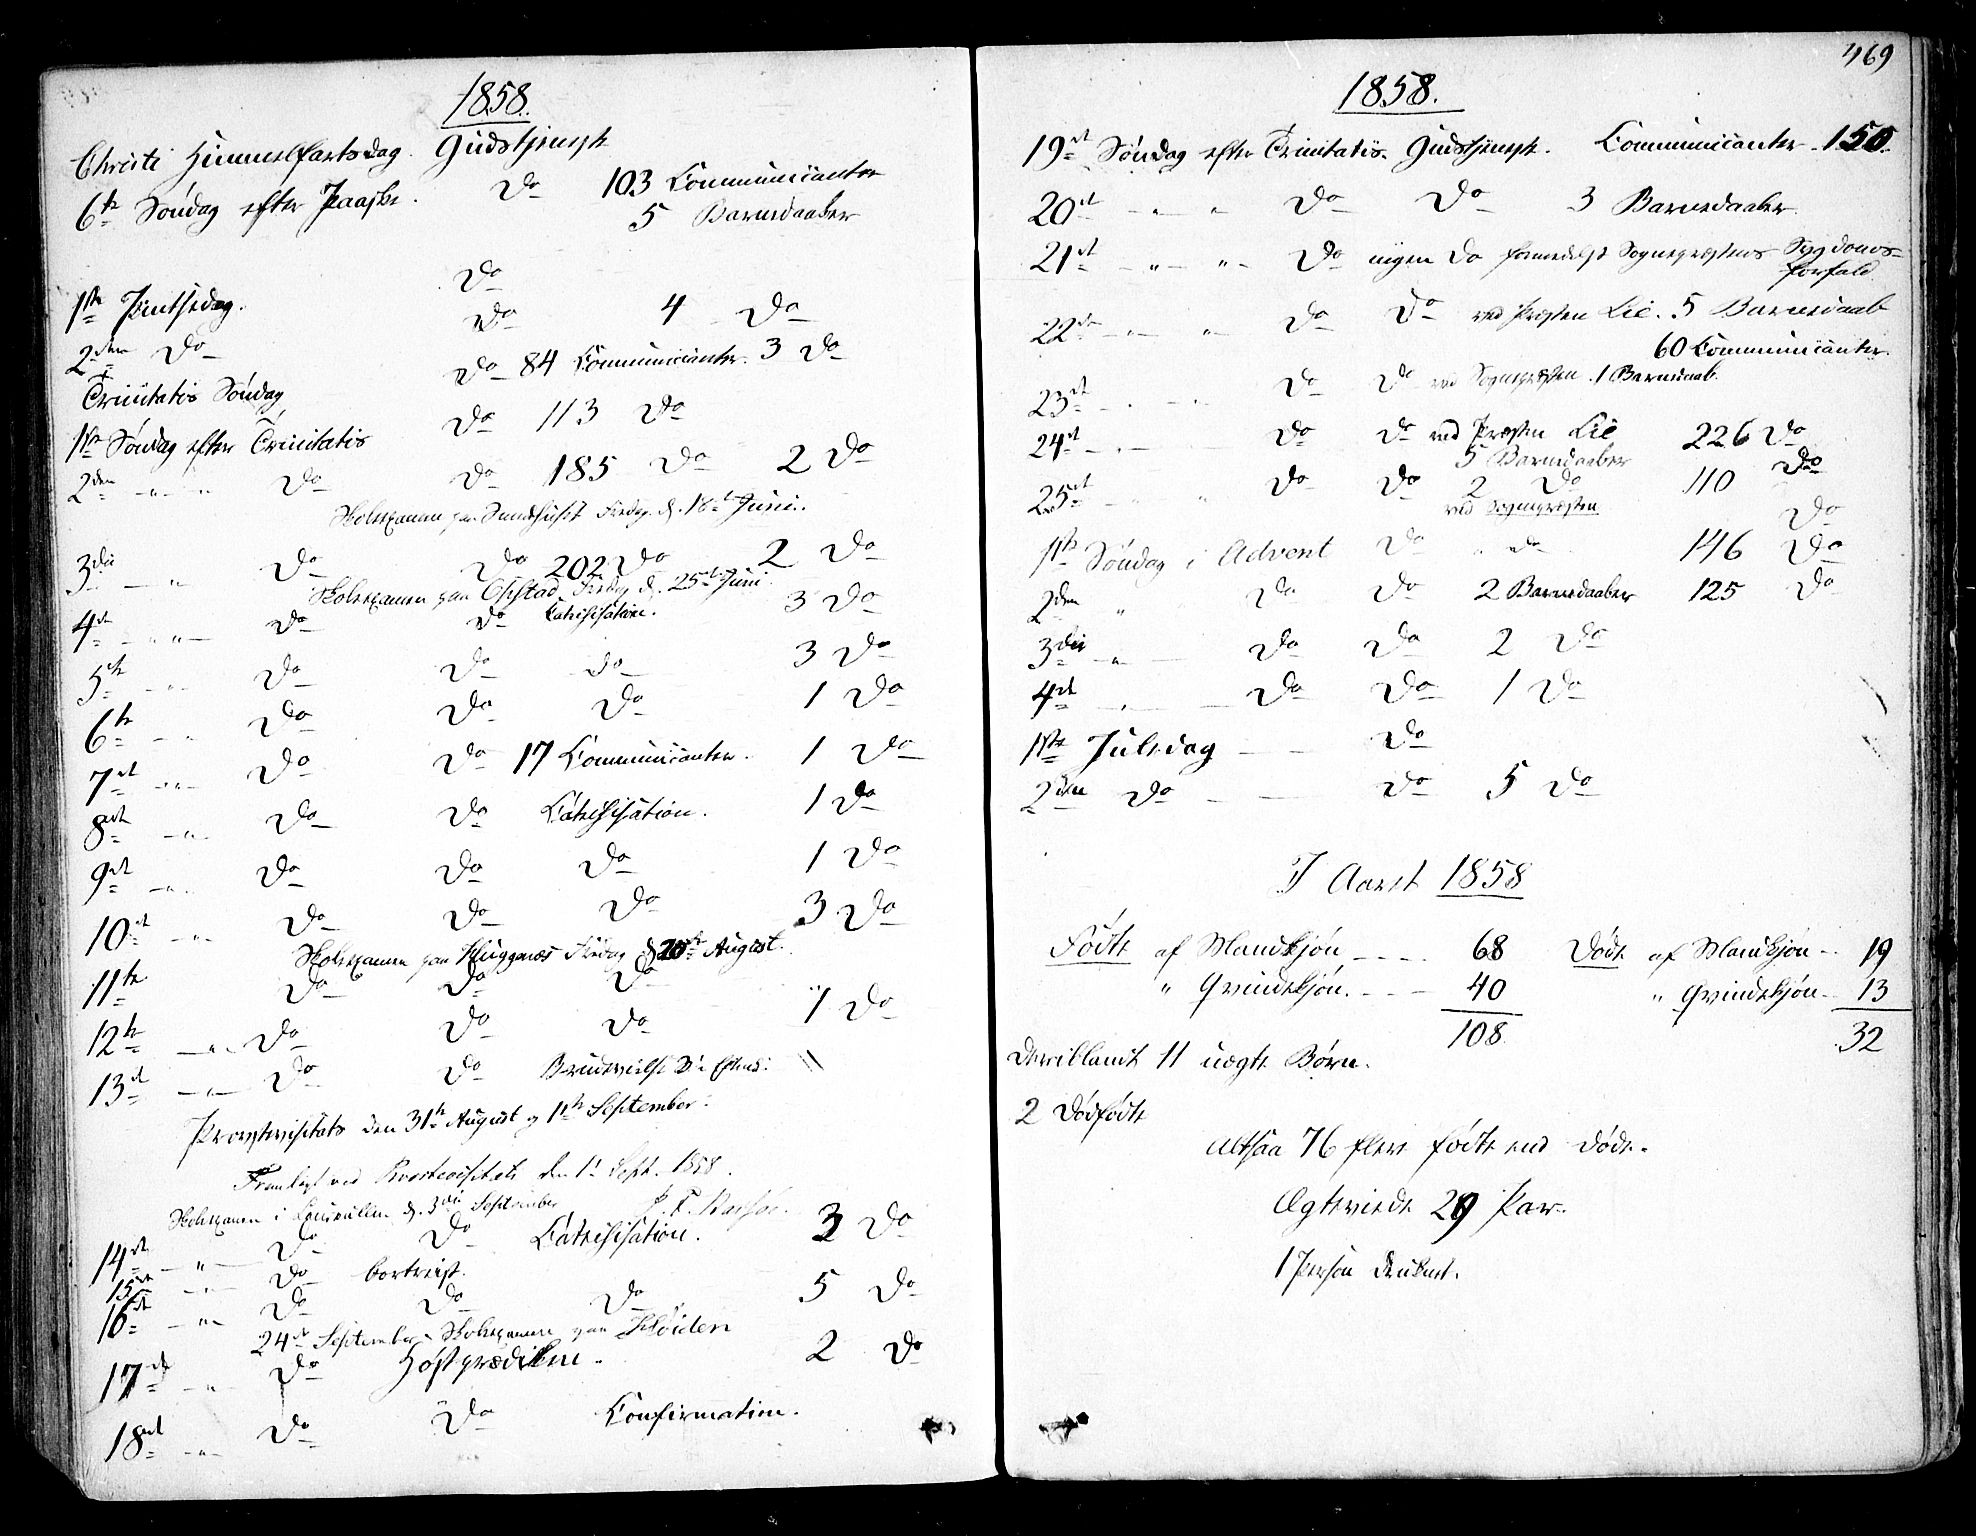 1858.
Christi Himmelfartsdag. Gudstjeneste
6te Søndag efter Paaske. Do 103 Communicanter
5 Barnedaaber
1ste Pintsedag. Do
2den Do Do 4 Do
Trinitatis Søndag Do 84 Communicanter. 3 Do
1ste Søndag efter Trinitatis Do 113 Do
2den - " - " Do Do 185 Do 2 Do
Skolexamen paa Sundhuset Fredag d. 18de Juni.
3die - " Do Do 202 Do 2 Do
Skolexamen paa Opstad Fredag d. 25de Juni
4de - " - " - Do Do Catechisation. 3 Do
5te - " - Do Do Do 3 Do
6te - " Do Do Do 1 Do
7de - " - Do Do 17 Communicanter. 1 Do
8de - " - Do Do Catechisation. 1 Do
9de - " - Do Do Do 1 Do
10de - " - Do Do Do 3 Do
Skolexamen paa Fredag d. 20de August.
11te Do Do Do
12te - " - Do Do Do 1 Do
13de - " - Do Do Brudevielse "
Provstevisitats den 31te August og 1ste September.
Fremlagt ved Provstevisitats den 1ste Sept. 1858.
Skolexamen i d. 3die September
14de - " - Do Do Catechisation. 3 Do
15de - " - Do bortreist.
16de - " - Do Do Do 5 Do
24de September Skolexamen paa
17de - " - Do Høstprædiken. 2 Do
18de - " - Do Do Confirmation.
469
1858.
19de Søndag efter Trinitatis. Gudstjeneste. Communicanter 150.
20de - " - " Do Do 3 Barnedaaber.
21de - " - " - Do ingen Do formedelst Sognepræstens Sygdoms-
forfald
22de - " - " Do Do ved Præsten Lie. 5 Barnedaab
60 Communicanter.
23de - " - " Do Do ved Sognepræsten. 1 Barnedaab.
24de - " - Do Do ved Præsten Lie 226 Do
5 Barnedaaber
25de " " Do Do 2 Do 110 Do
ved Sognepræsten
Do
1ste Søndag i Advent Do " Do 146 Do
2den " Do Do 2 Barnedaaber 125 Do
3die - " - Do Do 2 Do
4de - " - Do Do 1 Do
1ste Juledag - - Do
2den Do - - Do 5 Do
I Aaret 1858
Fødte af Mandkjøn - - - 68 Døde af Mandkjøn - 19
" Qvindekjøn. - - - 40 " Qvindekjøn - 13
108. 32
deriblandt 11 uægte Børn.
2 Dødfødte
altsaa 76 flere fødte end døde.
Ægteviede 29 Par.
1 Person